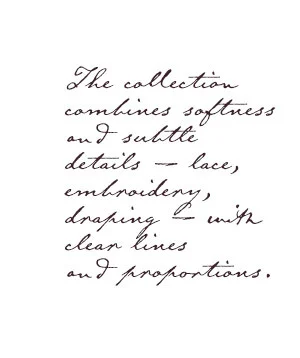 The collection
combines softness
and subtle
details — lace,
embroidery,
draping — with
clear lines
and proportions.